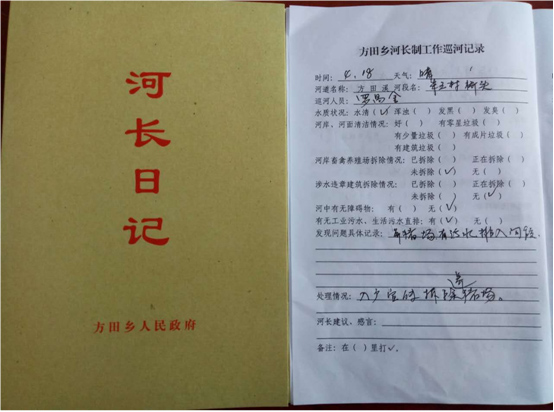 河长日记
方田乡人民政府
方田乡河长制工作巡河记录
时间: 4.18 天气: 晴
河道名称: 方田溪 河段名: 村
巡河人员: 罗
水质状况: 水清(✓) 浑浊( ) 发黑( ) 发臭( )
河岸、河面清洁情况: 好( ) 有零星垃圾( )
有少量垃圾( ) 有成片垃圾( )
有建筑垃圾( )
河岸畜禽养殖场拆除情况: 已拆除( ) 正在拆除( )
未拆除(✓) 无( )
涉水违章建筑拆除情况: 已拆除( ) 正在拆除( )
未拆除( ) 无(✓)
河中有无障碍物: 有( ) 无(✓)
有无工业污水、生活污水直排: 有(✓) 无( )
发现问题具体记录: 猪场有 排入河段.
养
处理情况: 拆除 猪场。
河长建议、感言:
备注: 在( )里打✓.